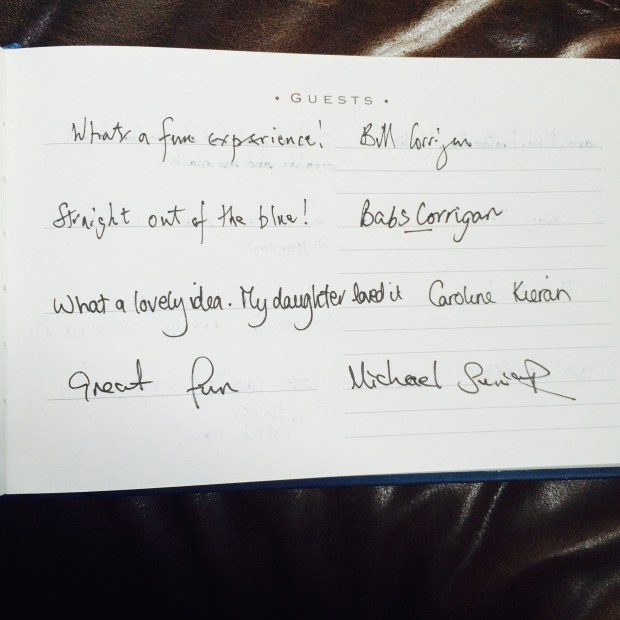 • GUESTS •
What a fun experience! Bill Corrigan
Straight out of the blue! Babs Corrigan
What a lovely idea. My daughter loved it Caroline Kieran
Great fun Michael